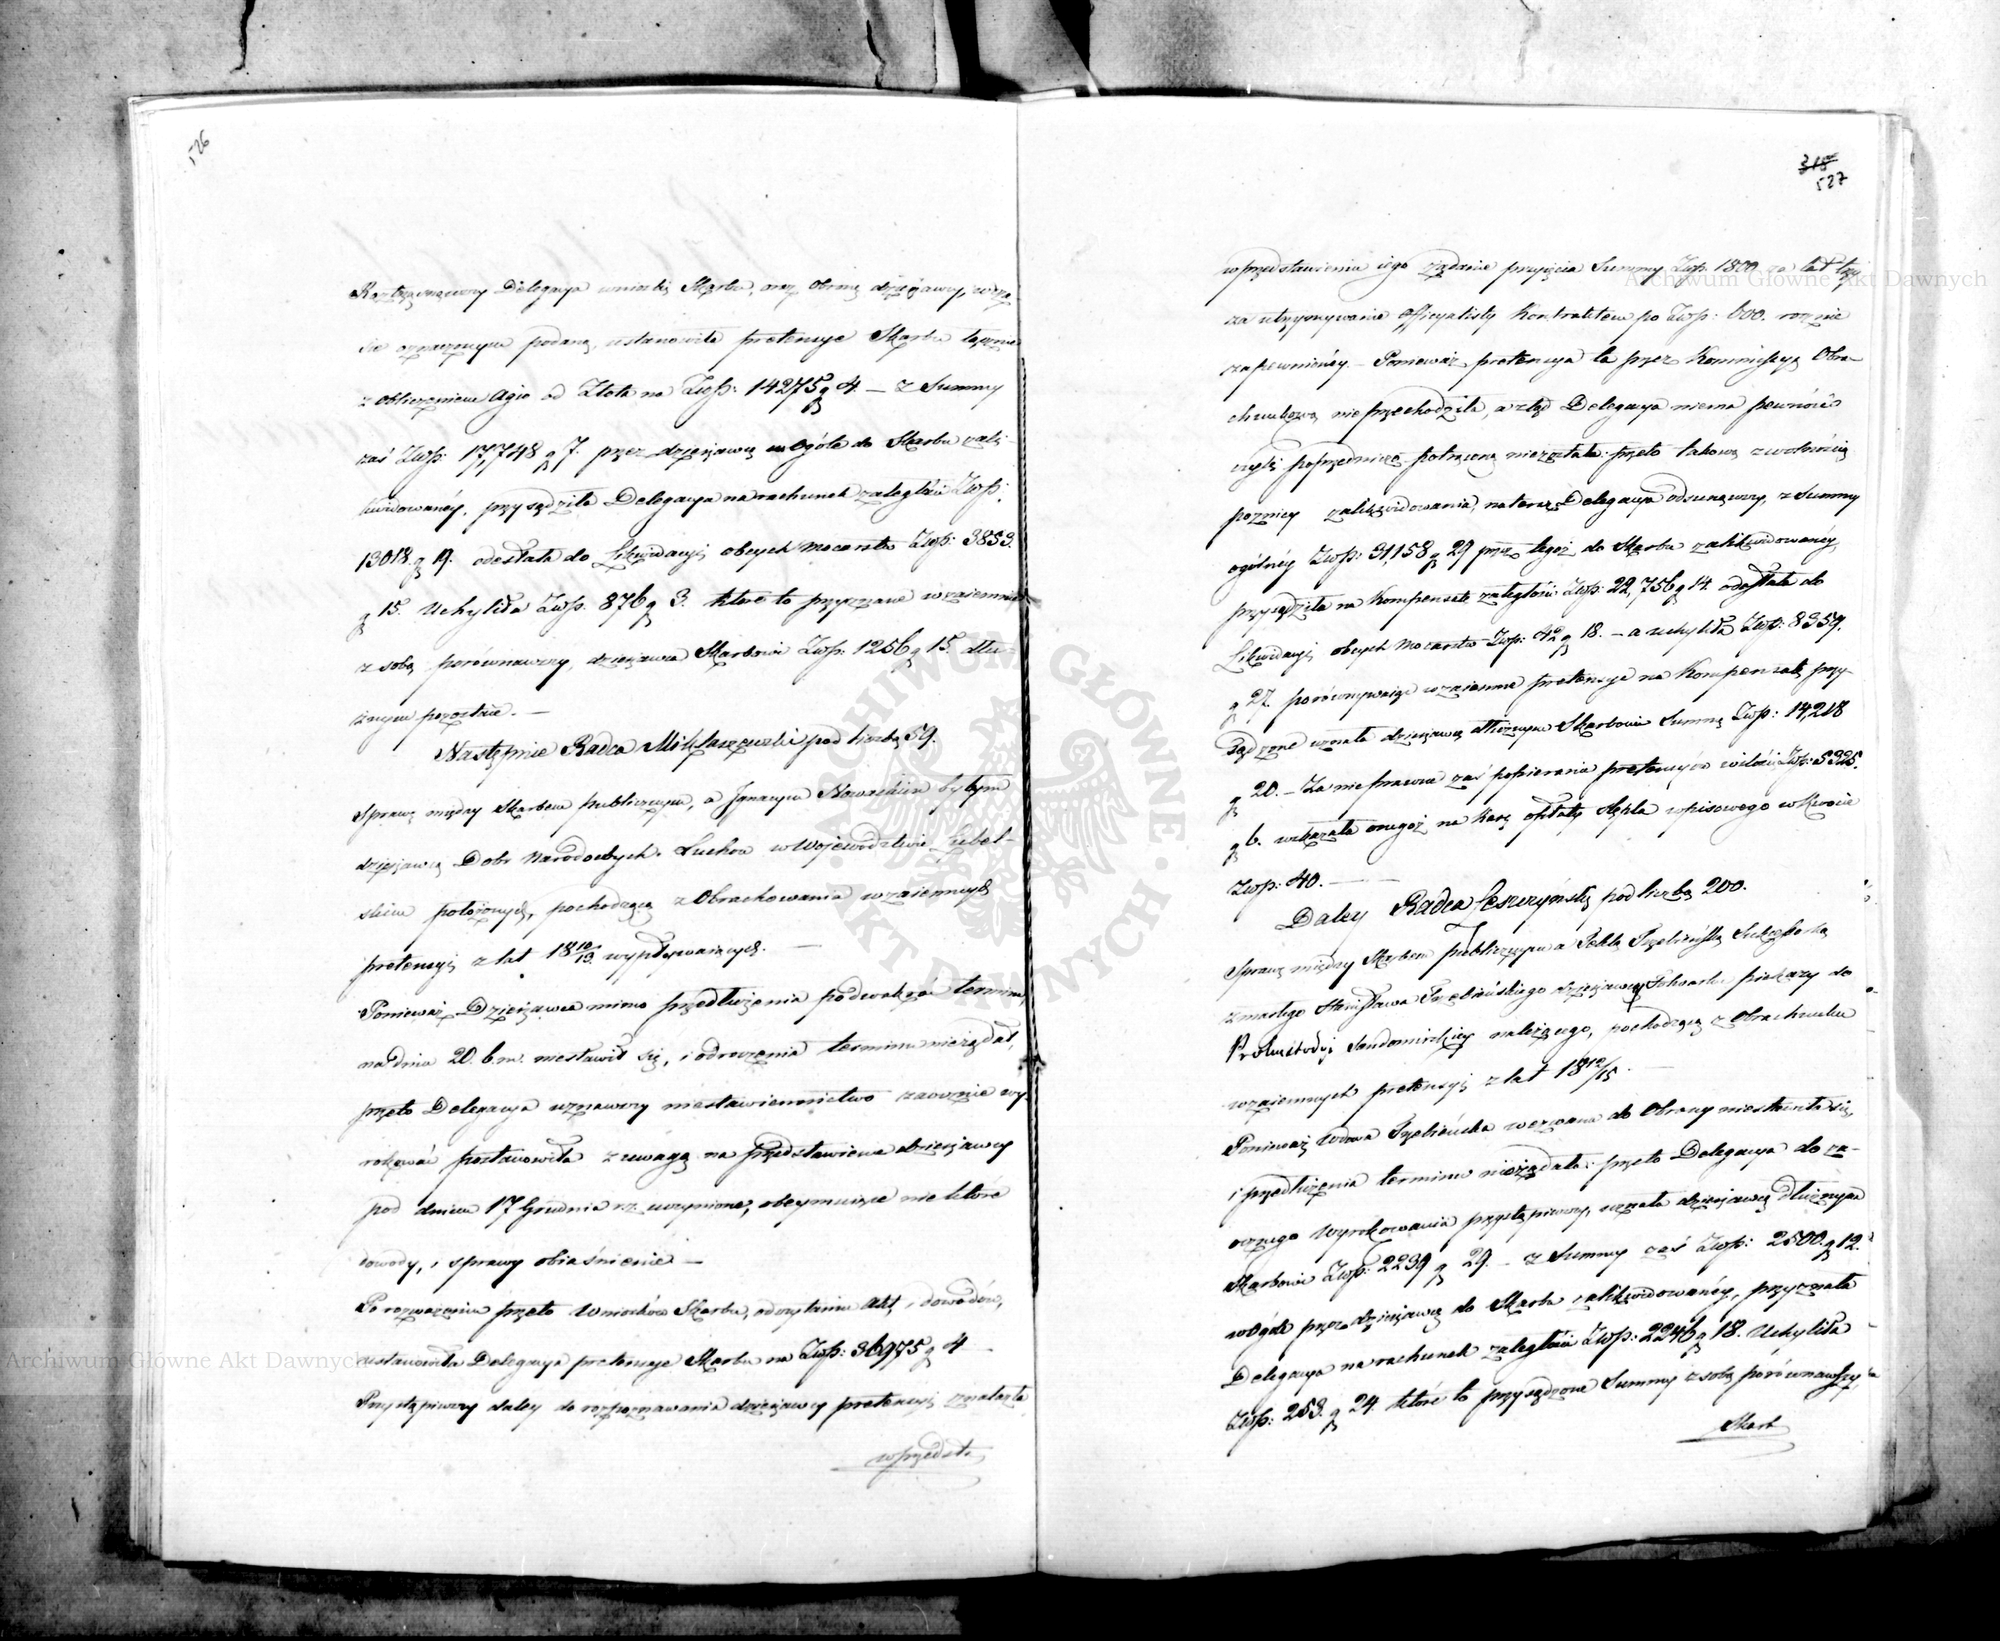 526
Roztrząsnąwszy Delegacya wnioski Skarbu, oraz obronę dzierżawcy, w czę-
sie oznaczonym podaną, ustanowiła pretensye Skarbu łącznie
z obliczeniem agio od Złota na Złtp: 14275 g 4. — z Summy
zaś Złtp: 17,748 g 7. przez dzierżawcę w ogóle do Skarbu zali-
kwidowanéy, przysądziła Delegacya na rachunek zaległości Złtp:
13018. g 19. odesłała do Likwidacyi obcych Mocarstw Złtp: 3853.
g 15. Uchyliła Złtp. 876 g 3. które to przyznane wzaiemnie
z sobą porównawszy, dzierżawca Skarbowi Złtp: 1256 g 15. dłu-
żnym pozostaie. —
Następnie Radca Miklaszewski pod liczbą 59.
Sprawę między Skarbem Publicznym, a Ignacym Nowackim byłym
dzierżawcą Dobr Narodowych Luchow w Wojewodztwie Lubel-
skim położonych, pochodzącą z Obrachowania wzaiemnych
pretensyi z lat 18 12/13 wypływaiących. —
Ponieważ Dzierżawca mimo przedłużenia podwakroć terminu
na dniu 20. b.m. niestawił się, i odroczenia terminu nieżądał,
przeto Delegacya uznawszy niestawiennictwo zaocznie wy-
rokować postanowiła z uwagą na przedstawienie dzierżawcy
pod dniem 17 Grudnia r.z. uczynione, obeymuiące niektóre
dowody, i sprawy obiaśnienie —
Po rozważeniu przeto wniosków Skarbu, odczytaniu Akt i dowodów,
ustanowiła Delegacya pretensye Skarbu na Złtp: 36975 g 4 —
Przystąpiwszy daley do rozpoznawania dzierżawcy pretensyi znalazła
w przedsta
318
527
w przedstawieniu iego żądanie przyjęcia Summy Złtp. 1800 za lat trzy
za utrzymywanie Officyalisty Kontraktem po Złtp: 600. rocznie
zapewnionéy — Ponieważ pretensya ta przez Kommissyą Obra-
chunkową nieprzechodziła, a ztąd Delegacya niema pewności
czyli poprzedniczo potrąconą niezostała: przeto takową z wolnością
poźniey zalikwidowania, na teraz Delegacya odsunąwszy, z Summy
ogólnéy Złtp: 31,158 g 29 przez tegoż do Skarbu zalikwidowanéy,
przysądziła na Kompensatę zaległości Złtp: 22,756 g 14 odesłała do
Likwidacyi obcych Mocarstw Złtp: 42 g 18. — a uchyliła Złtp: 8359.
g 27. porównywaiąc wzaiemne pretensye na Kompensatę przy-
sądzone uznała dzierżawcę dłużnym Skarbowi Summę Złtp: 14,218
g 20. — Za nieprawne zaś popieranie pretensyów w ilości Złtp: 5325.
g 6. wskazała onegoż na karę opłaty stępla wpisowego w kwocie
Złtp: 40. —
Daley Radca Leszczyński pod liczbą 200.
Sprawę między Skarbem publicznym a Teklą Trzebińską Sukcessorką
zmarłego Stanisława Trzebińskiego dzierżawcy Folwarku Piekary do
Prokuratoryi Sandomirskiey należącego, pochodzącą z Obrachunku
wzaiemnych pretensyi z lat 18 12/15. —
Ponieważ Wdowa Trzebińska wezwana do Obrony niestawiła się,
i przedłużenia terminu nieżądała: przeto Delegacya do za-
ocznego Wyrokowania przystąpiwszy, uznała dzierżawcę dłużnym
Skarbowi Złtp: 2239 g 29. — z Summy zaś Złtp: 2500. g 12.
w ogóle przez dzierżawcę do Skarbu zalikwidowanéy, przyznała
Delegacya na rachunek zaległości Złtp: 2246 g 18. Uchyliła
Złtp: 253. g 24. które to przysądzone Summy z sobą porównawszy,
Skarb
ARCHIWUM GŁÓWNE · AKT DAWNYCH ·
Archiwum Główne Akt Dawnych
Archiwum Główne Akt Dawnych